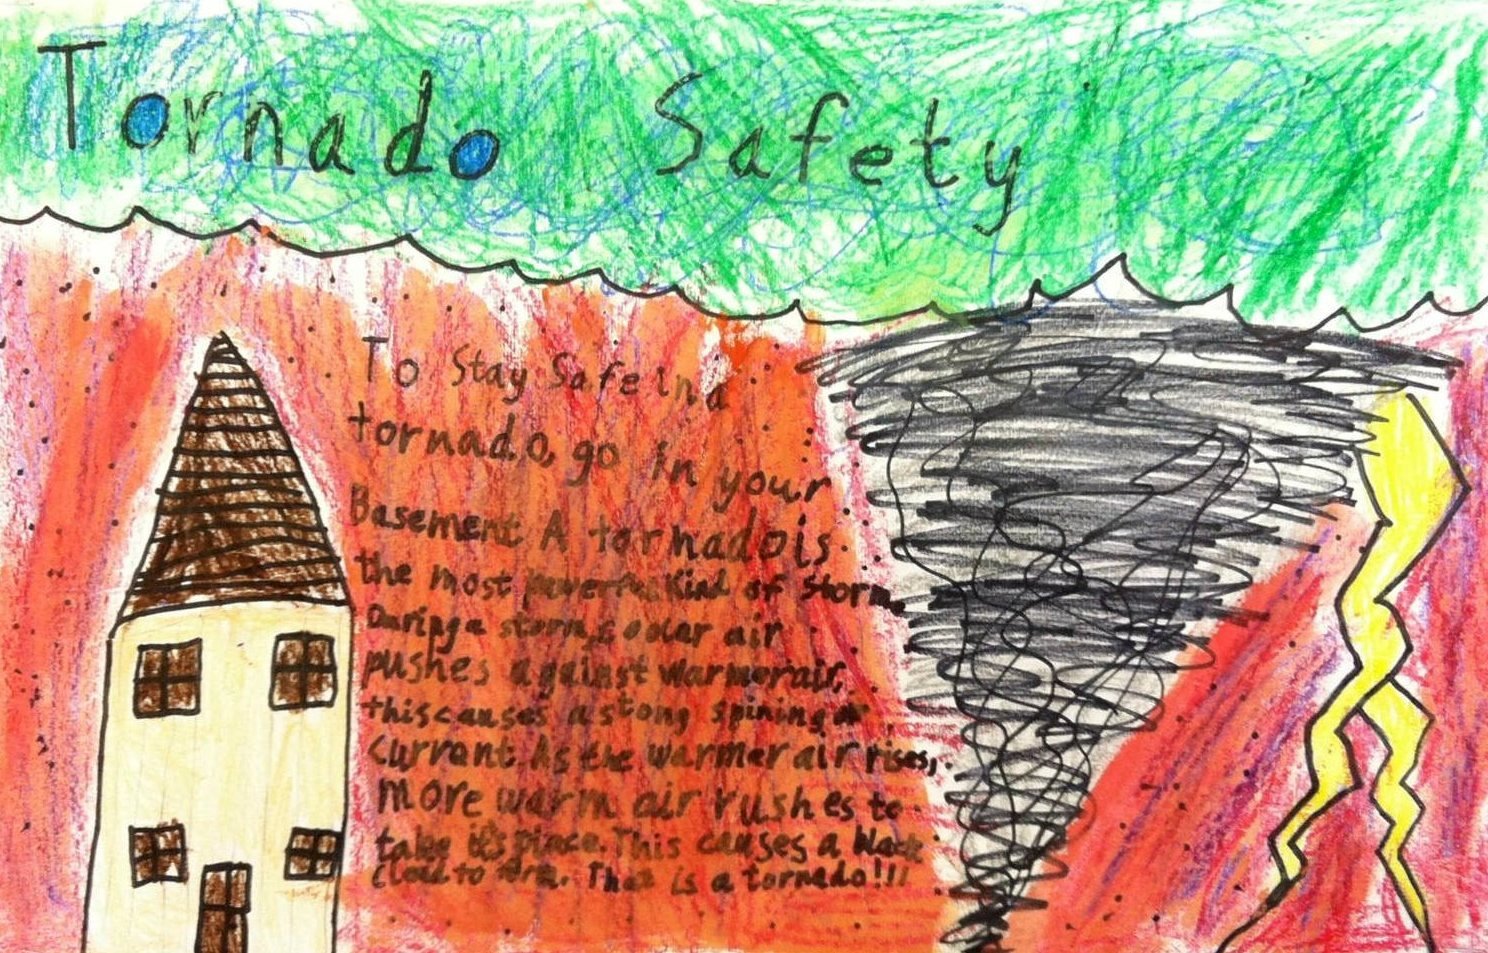 Tornado Safety
To Stay Safe in a
tornado, go in your
Basement A tornado is
the most powerful Kind of Storm.
During a storm, cooler air
pushes against warmer air,
this causes a stong spining air
currant. As the warmer air rises,
more warm air rushes to
take it's place. This causes a black
cloud to form. That is a tornado!!!